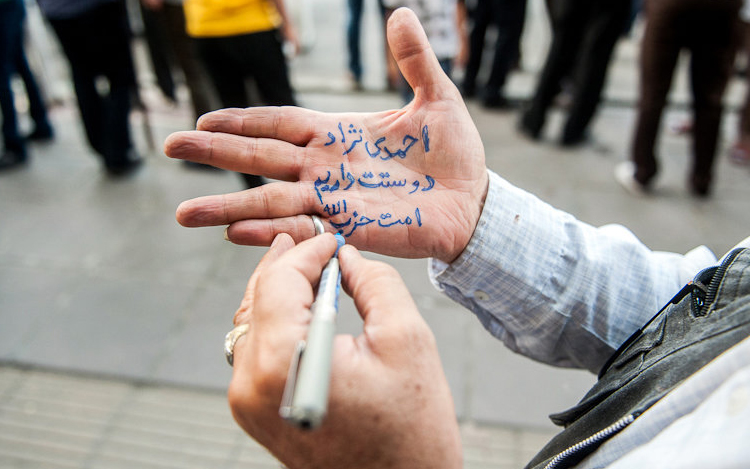 احمدی نژاد
دوستت داریم
امت حزب الله